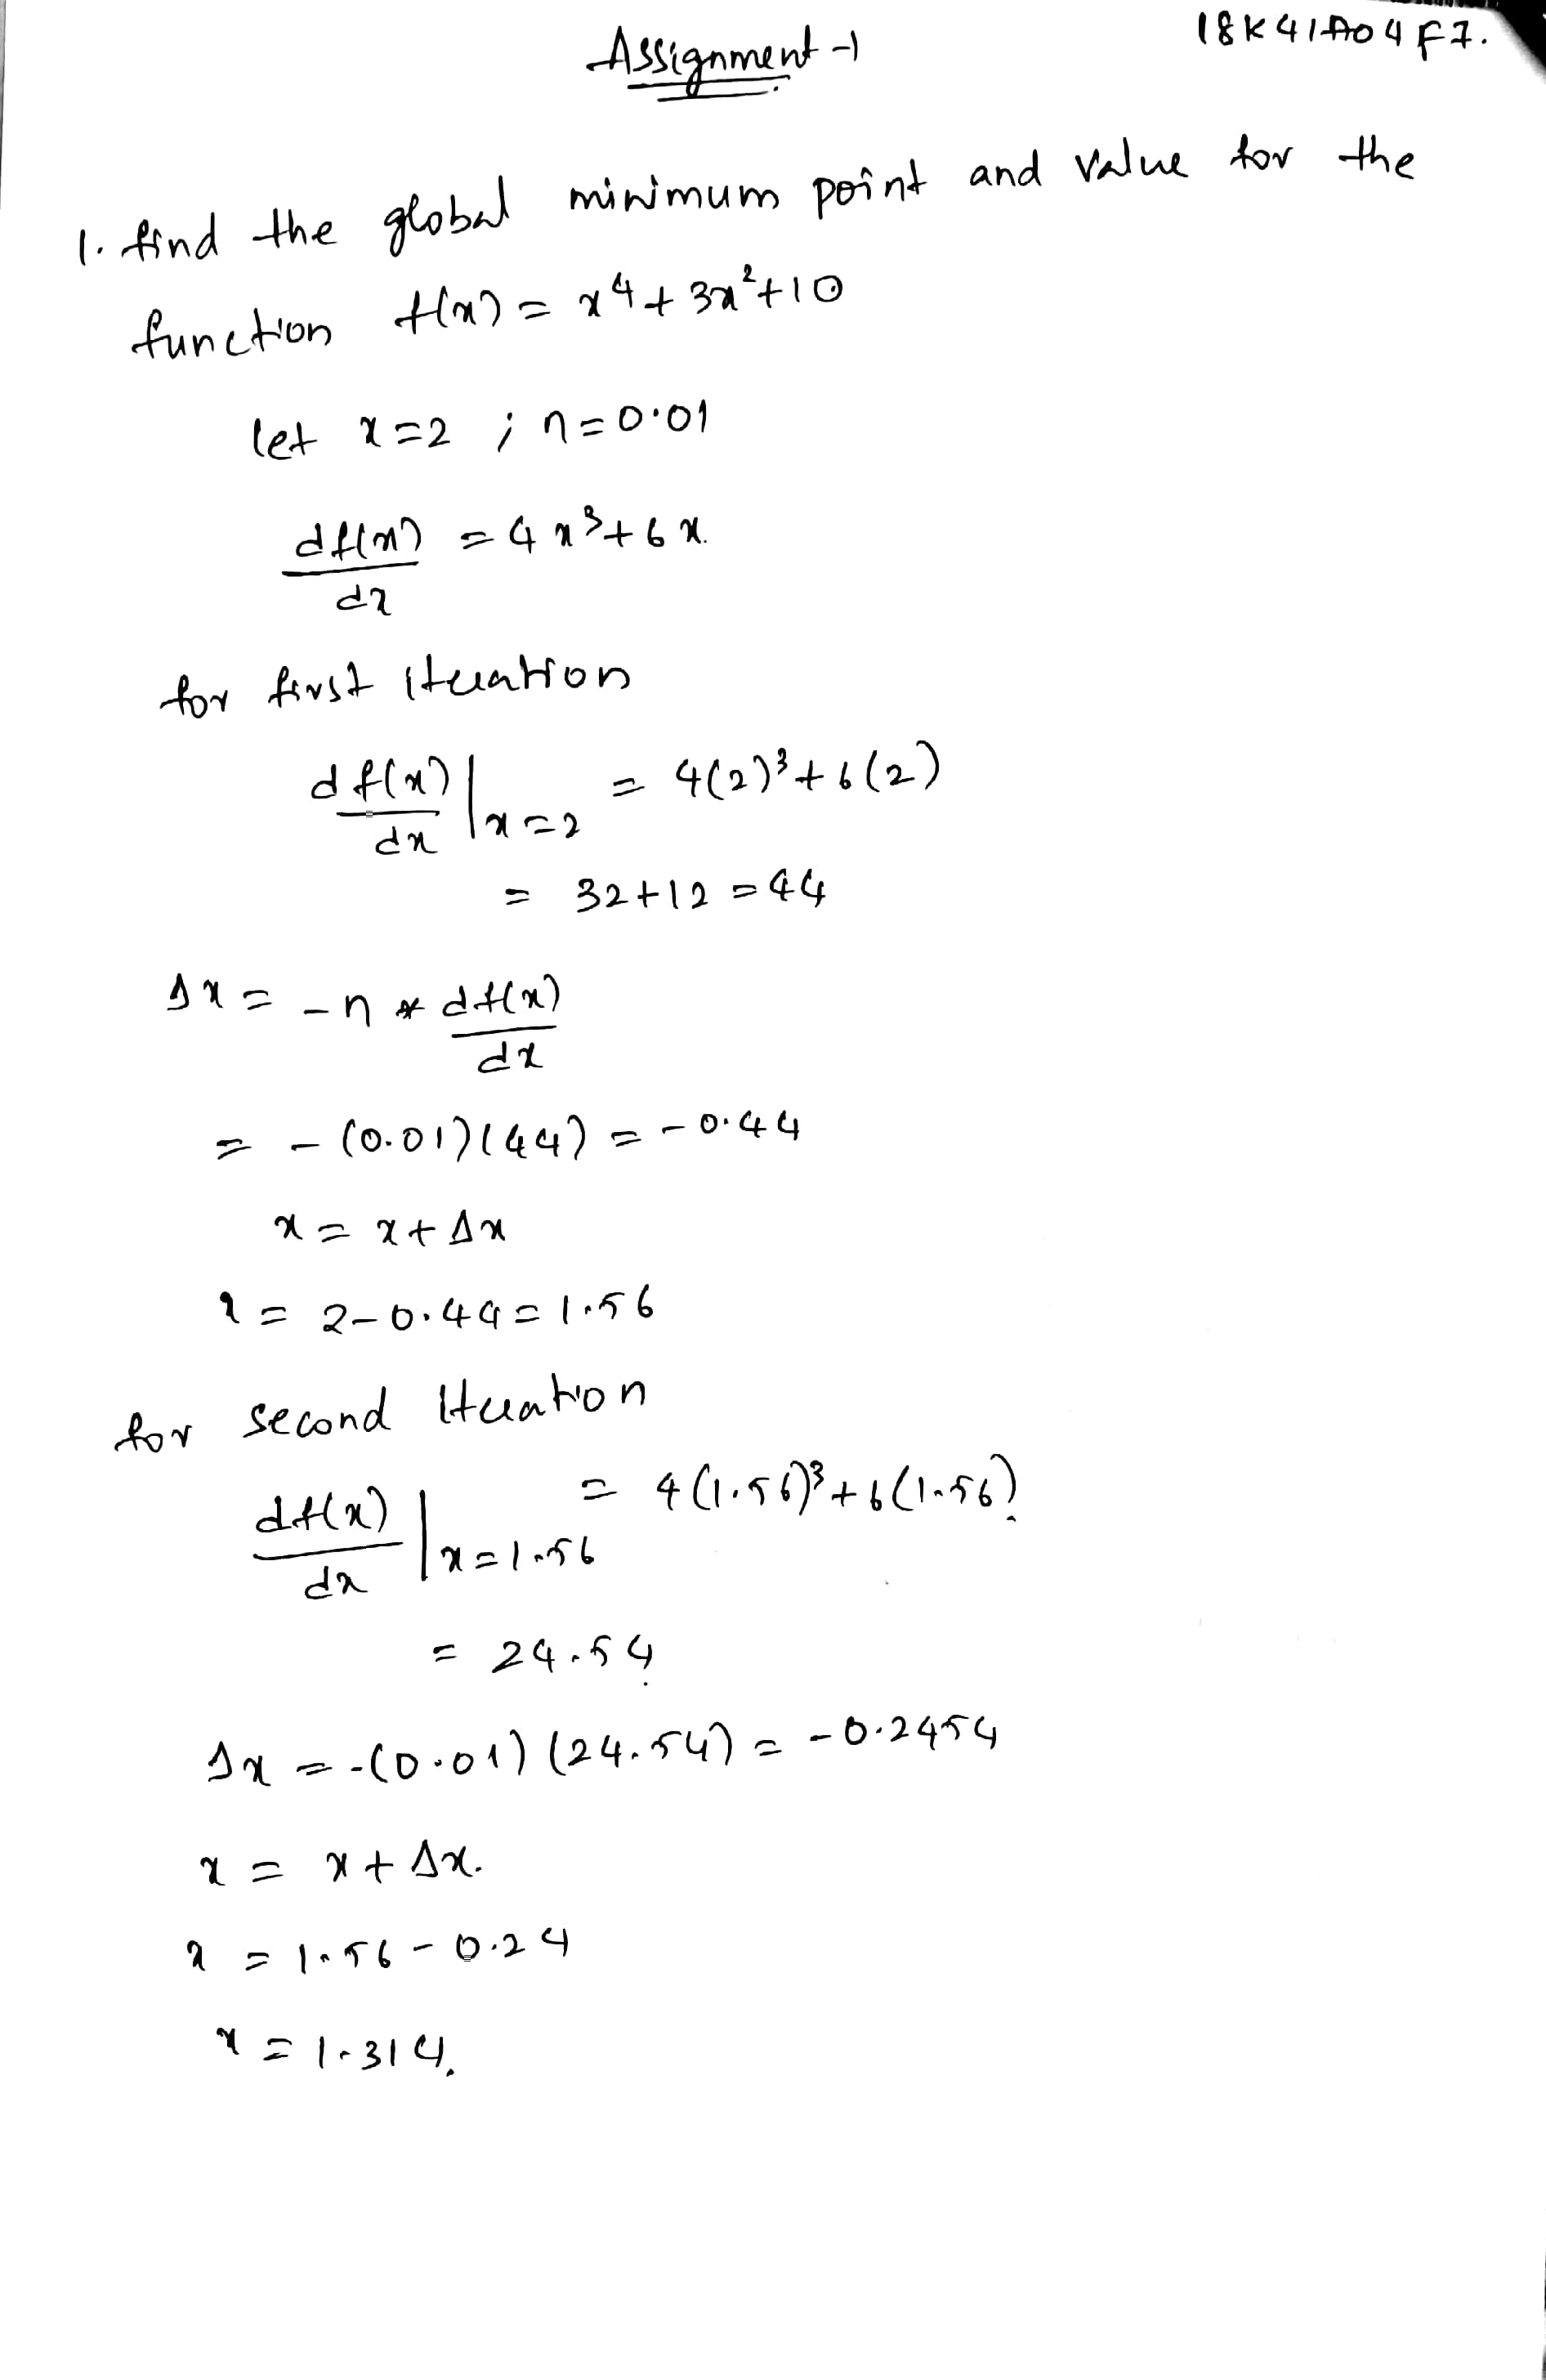 Assignment-1
18K41A04F7.
1. find the global minimum point and value for the
function f(x) = x⁴ + 3x² + 10
let x = 2 ; η = 0.01
df(x)/dx = 4x³ + 6x.
for first iteration
df(x)/dx |x=2 = 4(2)³ + 6(2)
= 32 + 12 = 44
Δx = -η * df(x)/dx
= -(0.01)(44) = -0.44
x = x + Δx
x = 2 - 0.44 = 1.56
for second Iteration
df(x)/dx |x=1.56 = 4(1.56)³ + 6(1.56).
= 24.54.
Δx = -(0.01)(24.54) = -0.2454
x = x + Δx.
x = 1.56 - 0.24
x = 1.314.